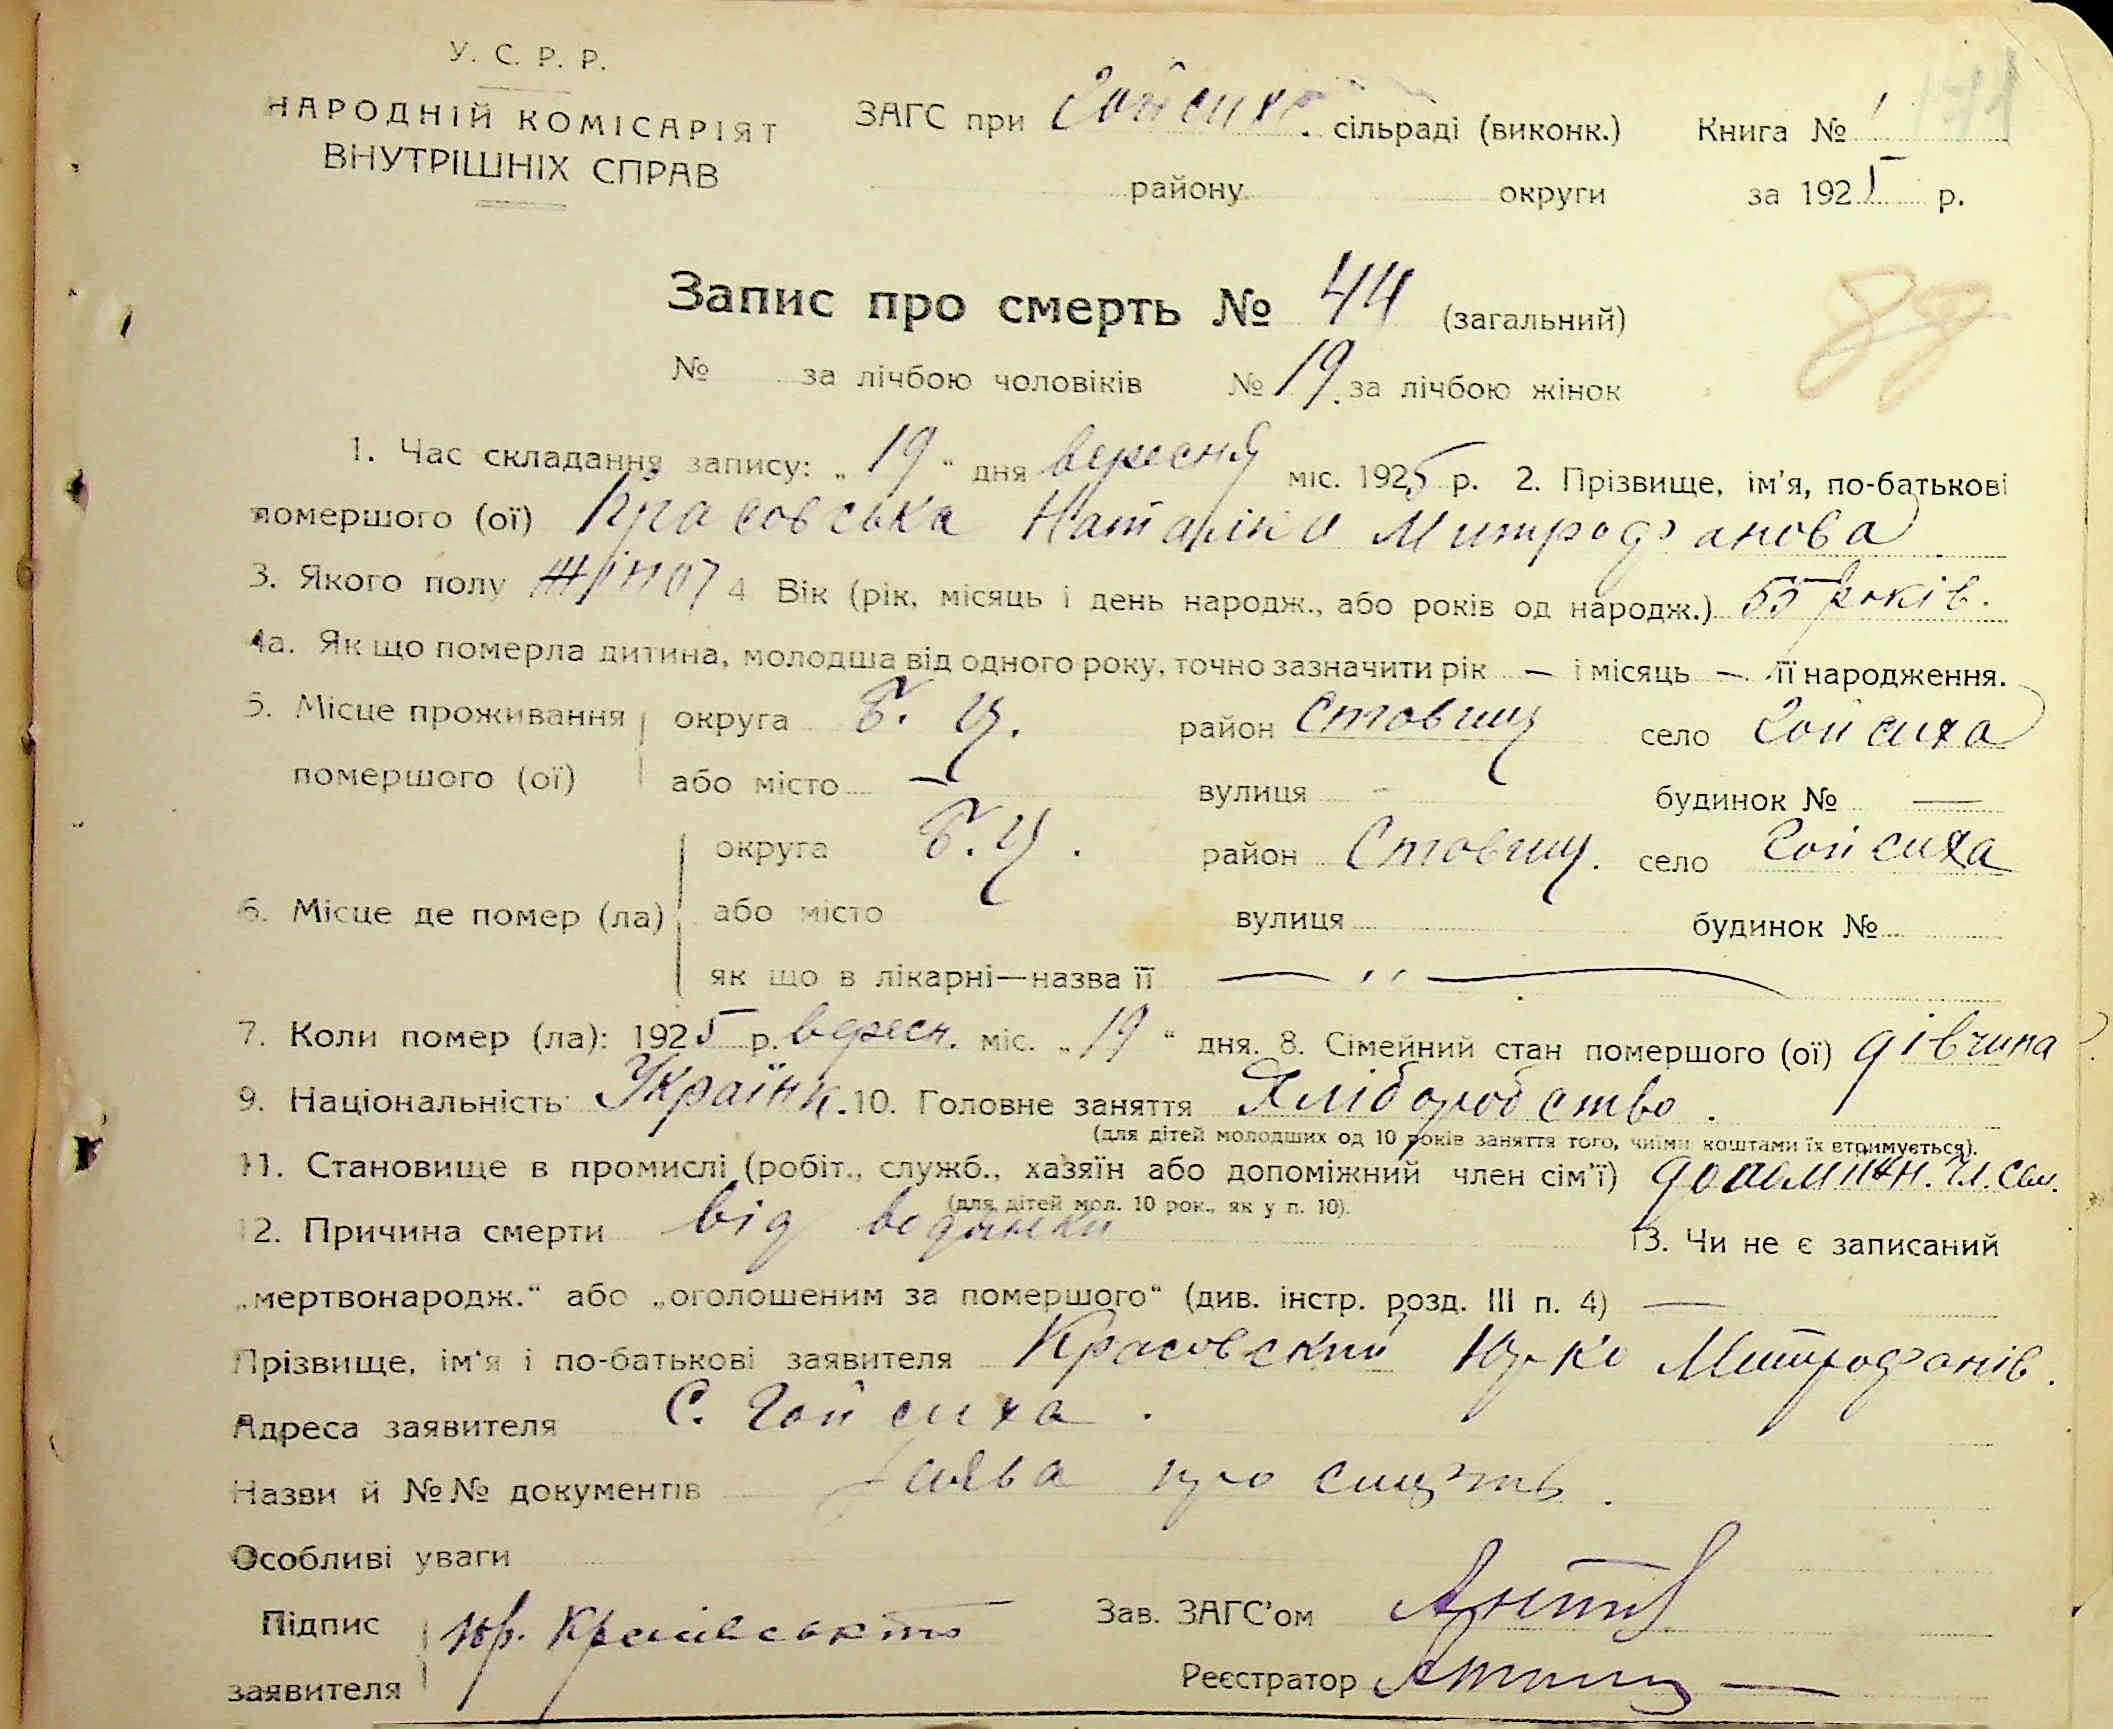 У. С. Р. Р.
НАРОДНІЙ КОМІСАРІЯТ
ВНУТРІШНІХ СПРАВ
ЗАГС при Гойсихо. сільраді (виконк.) Книга № 1
району округи за 1925 р.
Запис про смерть № 44 (загальний)
88
№ за лічбою чоловіків № 19. за лічбою жінок
1. Час складання запису: „ 19 “ дня вересня міс. 1925 р. 2. Прізвище, ім'я, по-батькові
помершого (ої) Красовська Наталія Митрофанова
3. Якого полу жіноч 4 Вік (рік, місяць і день народж., або років од народж.) 55 років.
4а. Як що померла дитина, молодша від одного року, точно зазначити рік — і місяць — її народження.
5. Місце проживання округа Б. Ц. район Ставищ село Гойсиха
помершого (ої) або місто — вулиця - будинок № —
округа Б. Ц. район Ставищ. село Гойсиха
6. Місце де помер (ла) або місто вулиця будинок №
як що в лікарні—назва її — „ —
7. Коли помер (ла): 1925 р. вересн. міс. „ 19 “ дня. 8. Сімейний стан помершого (ої) дівчина
9. Національність Українк. 10. Головне заняття Хліборобство.
(для дітей молодших од 10 років заняття того, чиїми коштами їх втримується).
11. Становище в промислі (робіт., служб., хазяїн або допоміжний член сім'ї) допоміжн. чл. сем.
(для дітей мол. 10 рок., як у п. 10).
12. Причина смерти від водянки 13. Чи не є записаний
„мертвонародж.“ або „оголошеним за помершого“ (див. інстр. розд. III п. 4) —
Прізвище, ім'я і по-батькові заявителя Красовский Юрко Митрофанів.
Адреса заявителя С. Гойсиха.
Назви й №№ документів Заява про смерть.
Особливі уваги
Підпис Юр. Зав. ЗАГС'ом
заявителя Реєстратор